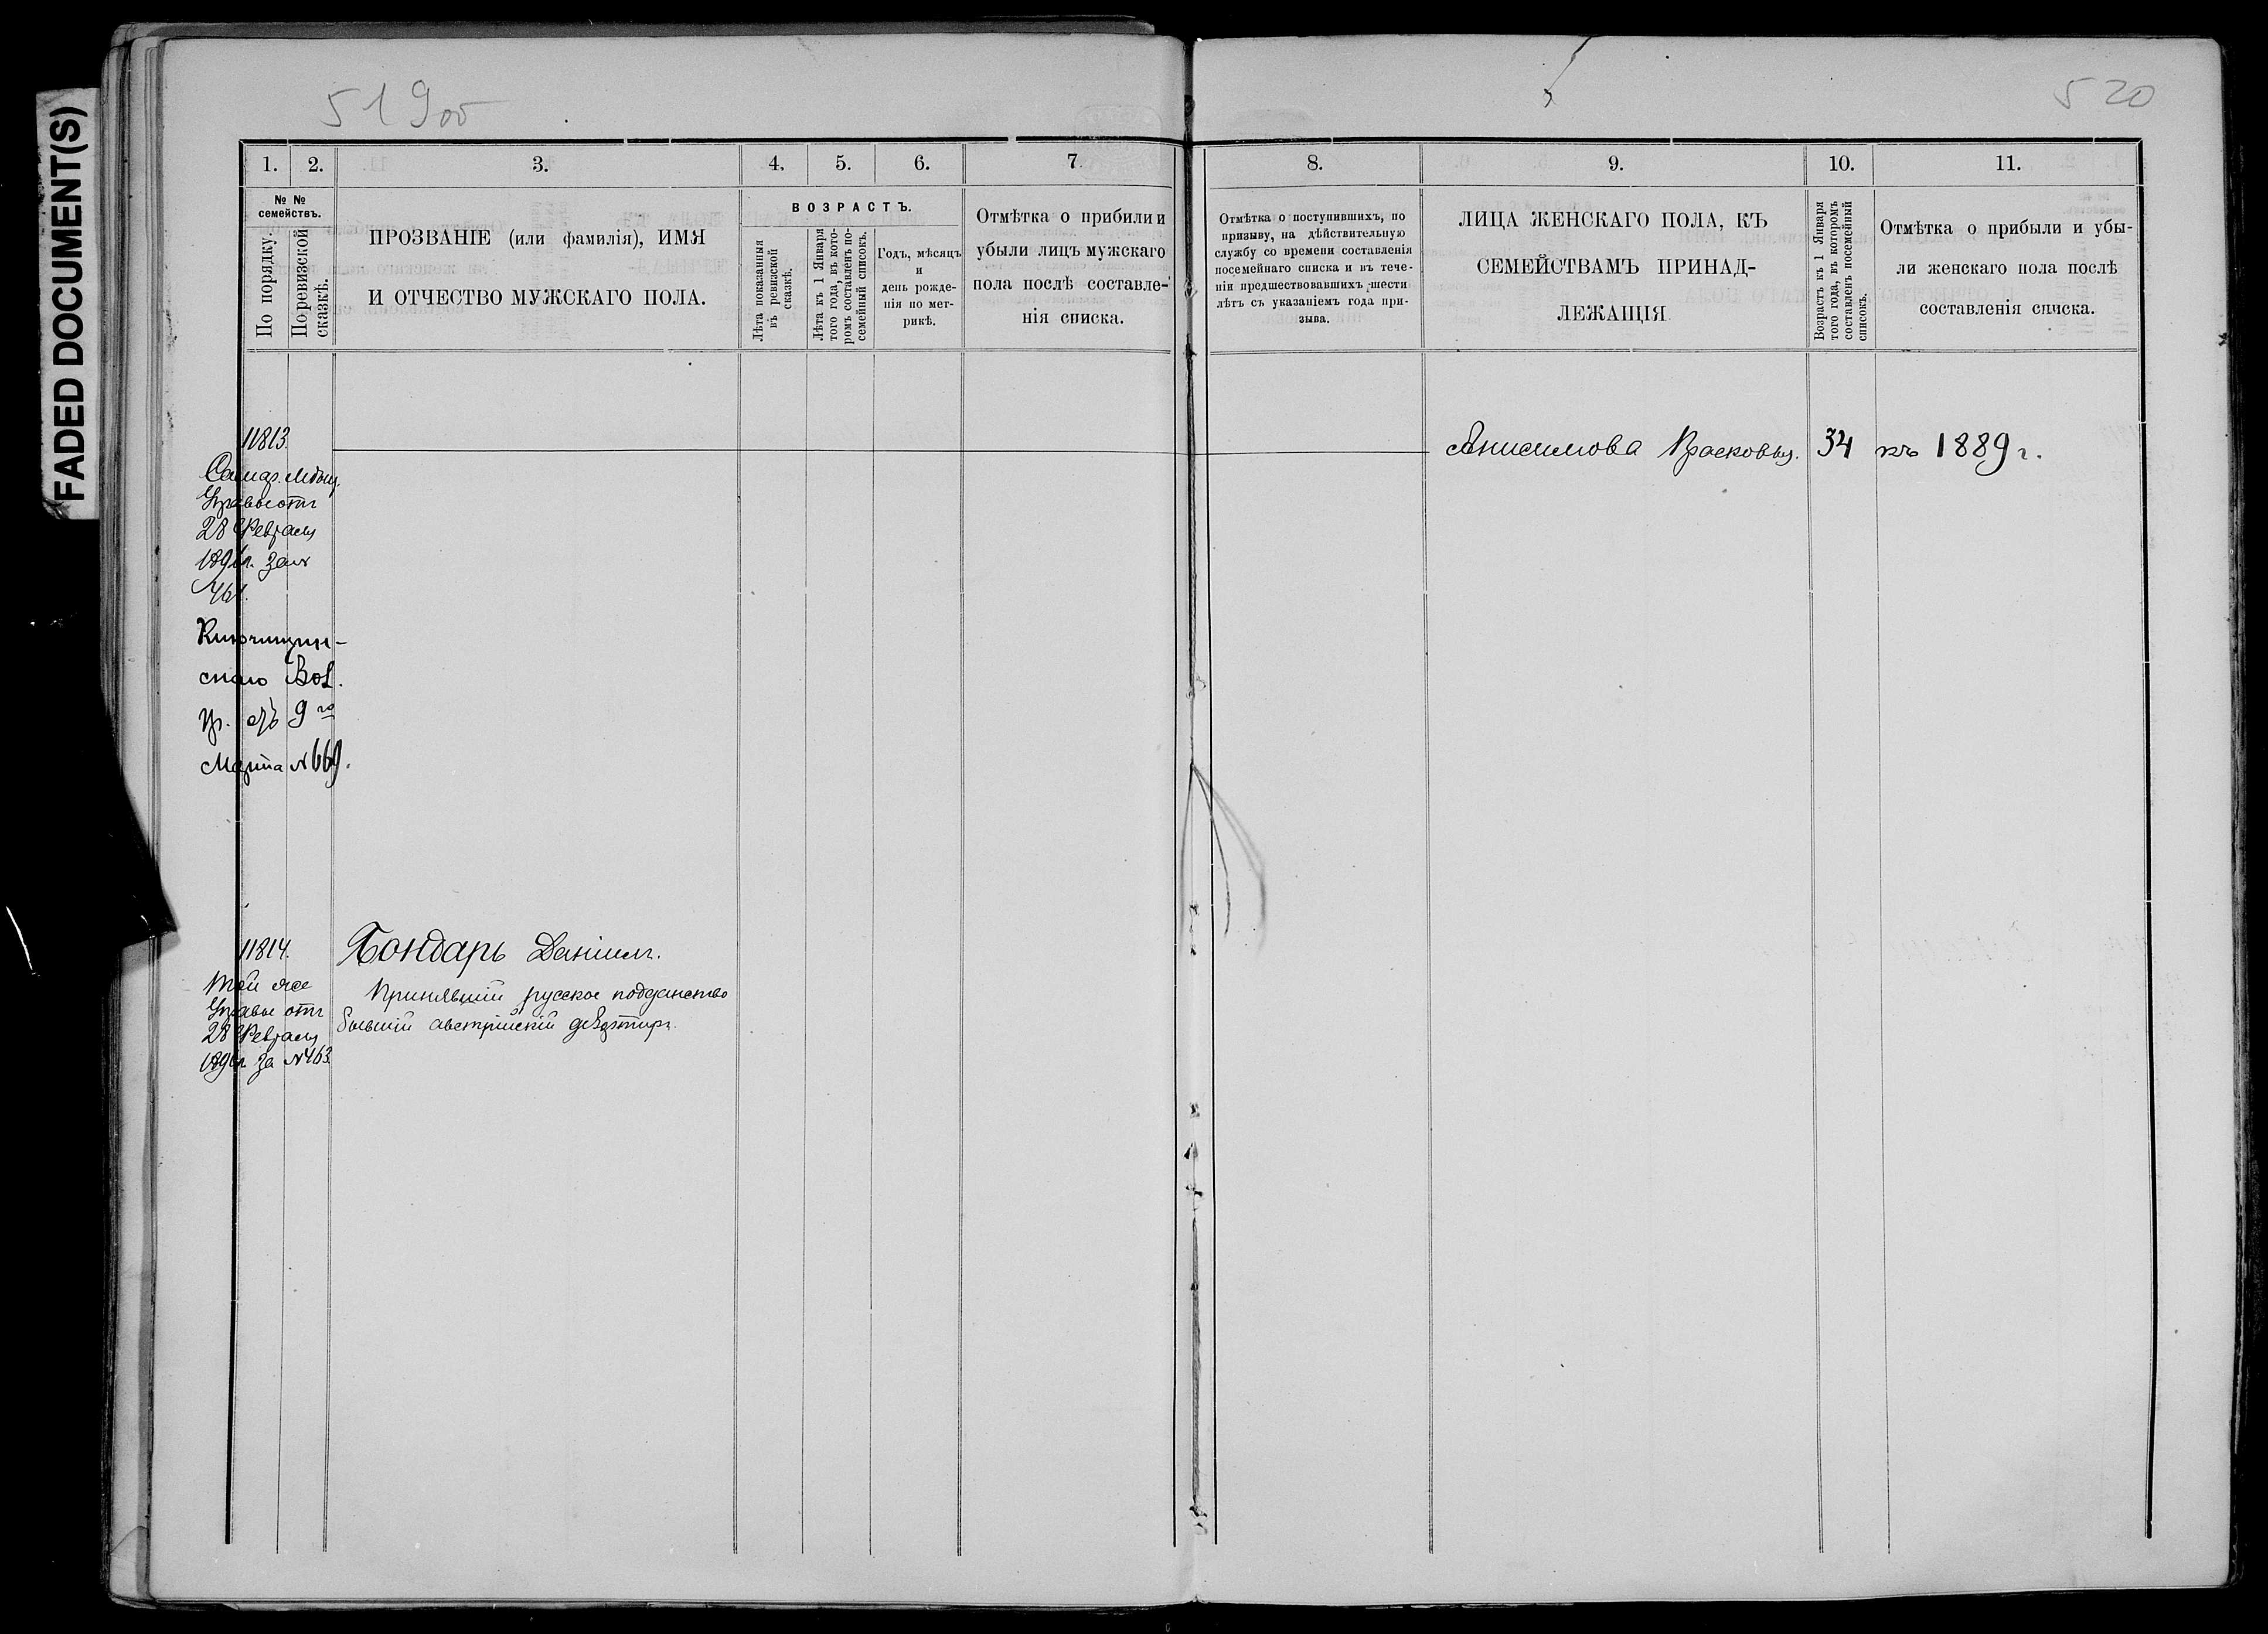 FADED DOCUMENT(S)
519об
520
1. 2. 3. 4. 5. 6. 7.
№ № семействъ.
По порядку.
По ревизской сказкѣ.
ПРОЗВАНІЕ (или фамилія), ИМЯ
И ОТЧЕСТВО МУЖСКАГО ПОЛА.
ВОЗРАСТЪ.
Лѣта показанныя
въ ревизской
сказкѣ.
Лѣта къ 1 Января
того года, въ кото-
ромъ составленъ по-
семейный списокъ.
Годъ, мѣсяцъ
и
день рожде-
нія по мет-
рикѣ.
Отмѣтка о прибили и
убыли лицъ мужскаго
пола послѣ составле-
нія списка.
8. 9. 10. 11.
Отмѣтка о поступившихъ, по
призыву, на дѣйствительную
службу со времени составленія
посемейнаго списка и въ тече-
ніи предшествовавшихъ шести
лѣтъ съ указаніемъ года при-
зыва.
ЛИЦА ЖЕНСКАГО ПОЛА, КЪ
СЕМЕЙСТВАМЪ ПРИНАД-
ЛЕЖАЩІЯ
Возрастъ къ 1 Января
того года, въ которомъ
составленъ посемейный
списокъ.
Отмѣтка о прибыли и убы-
ли женскаго пола послѣ
составленія списка.
11813.
Самар. Мѣщ.
Управы отъ
28 Февраля
за №
461.
Ключищин-
скаго Вол.
пр. отъ 9го
Марта №669.
Анисимова Прасковья. 34 къ 1889 г.
11814. Бондарь Даніилъ.
Той же
Управы отъ
28 Февраля
за №463.
Принявшій русское подданство
бывшій австрійскій дезертиръ.